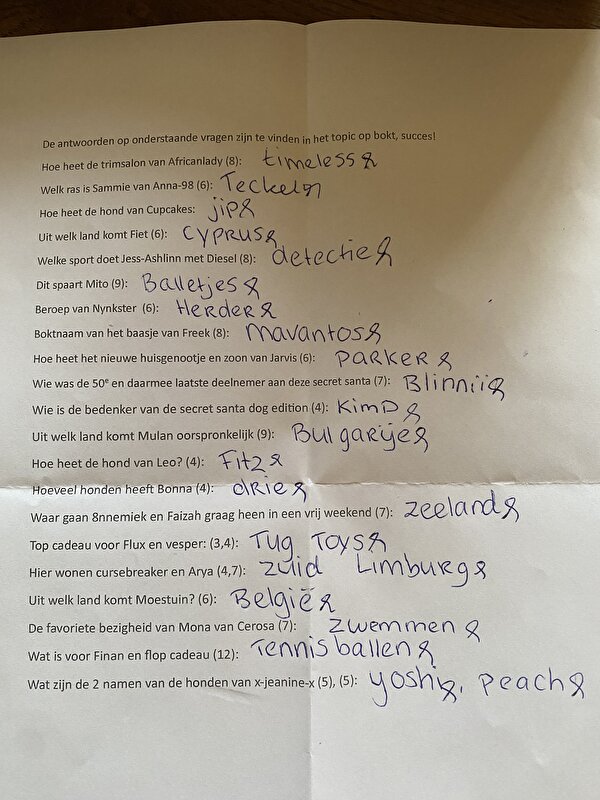 De antwoorden op onderstaande vragen zijn te vinden in het topic op bokt, succes!
Hoe heet de trimsalon van Africanlady (8): timeless
Welk ras is Sammie van Anna-98 (6): Teckel
Hoe heet de hond van Cupcakes: jip
Uit welk land komt Fiet (6): CYPRUS
Welke sport doet Jess-Ashlinn met Diesel (8): detectie
Dit spaart Mito (9): Balletjes
Beroep van Nynkster (6): Herder
Boktnaam van het baasje van Freek (8): mavantos
Hoe heet het nieuwe huisgenootje en zoon van Jarvis (6): PARKER
Wie was de 50e en daarmee laatste deelnemer aan deze secret santa (7): Blinnii
Wie is de bedenker van de secret santa dog edition (4): KimD
Uit welk land komt Mulan oorspronkelijk (9): Bulgarije
Hoe heet de hond van Leo? (4): Fitz
Hoeveel honden heeft Bonna (4): drie
Waar gaan 8nnemiek en Faizah graag heen in een vrij weekend (7): zeeland
Top cadeau voor Flux en vesper: (3,4): Tug Toys
Hier wonen cursebreaker en Arya (4,7): zuid Limburg
Uit welk land komt Moestuin? (6): België
De favoriete bezigheid van Mona van Cerosa (7): zwemmen
Wat is voor Finan en flop cadeau (12): Tennisballen
Wat zijn de 2 namen van de honden van x-jeanine-x (5), (5): yoshi, peach